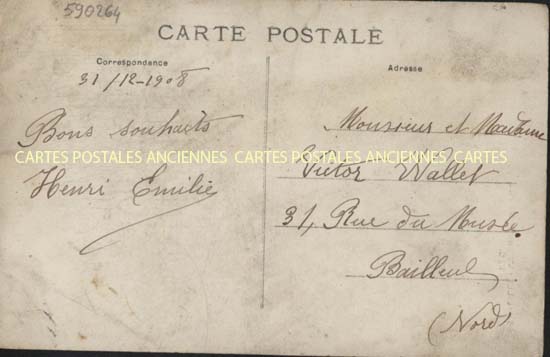 590264
CARTE POSTALE
Correspondance
31/12-1908
Bons souhaits
Henri Emilie
Adresse
Monsieur et Madame
Victor Wallet
31, Rue du Musée
Bailleul
(Nord)
CARTES POSTALES ANCIENNES CARTES POSTALES ANCIENNES CARTES